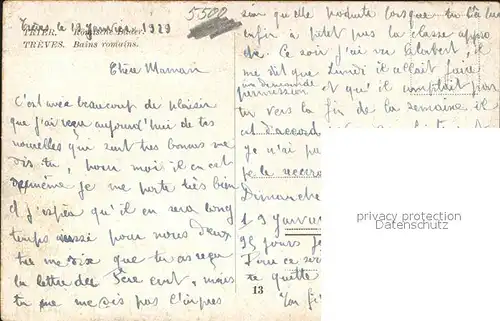 Trèves, le 19 Janvier 1929
5500
TRIER. Römische Bäder.
TRÈVES. Bains romains.
Chère Maman
C'est avec beaucoup de plaisir
que j'ai reçu aujourd'hui de tes
nouvelles qui sont très bonnes me
dis tu, pour moi il en est
de même je me porte très bien
et j'espère qu'il en sera long
temps aussi pour nous deux
tu me dis que tu as reçu
la lettre du Père , mais
tu me dis pas l'
sion qu'elle produite lorsque tu l'as lu
enfin à petit pas la classe approche
de. Ce soir j'ai vu il
me dit que Lundi il allait faire
sa demande
permission et qu'il comptait par
tir vers la fin de la semaine il
est d'accord
je n'ai pas
pe le
Dimanche
19 Janvier
95 jours
Pour ce soir
te quitte
Ton fi
13
privacy protection
Datenschutz